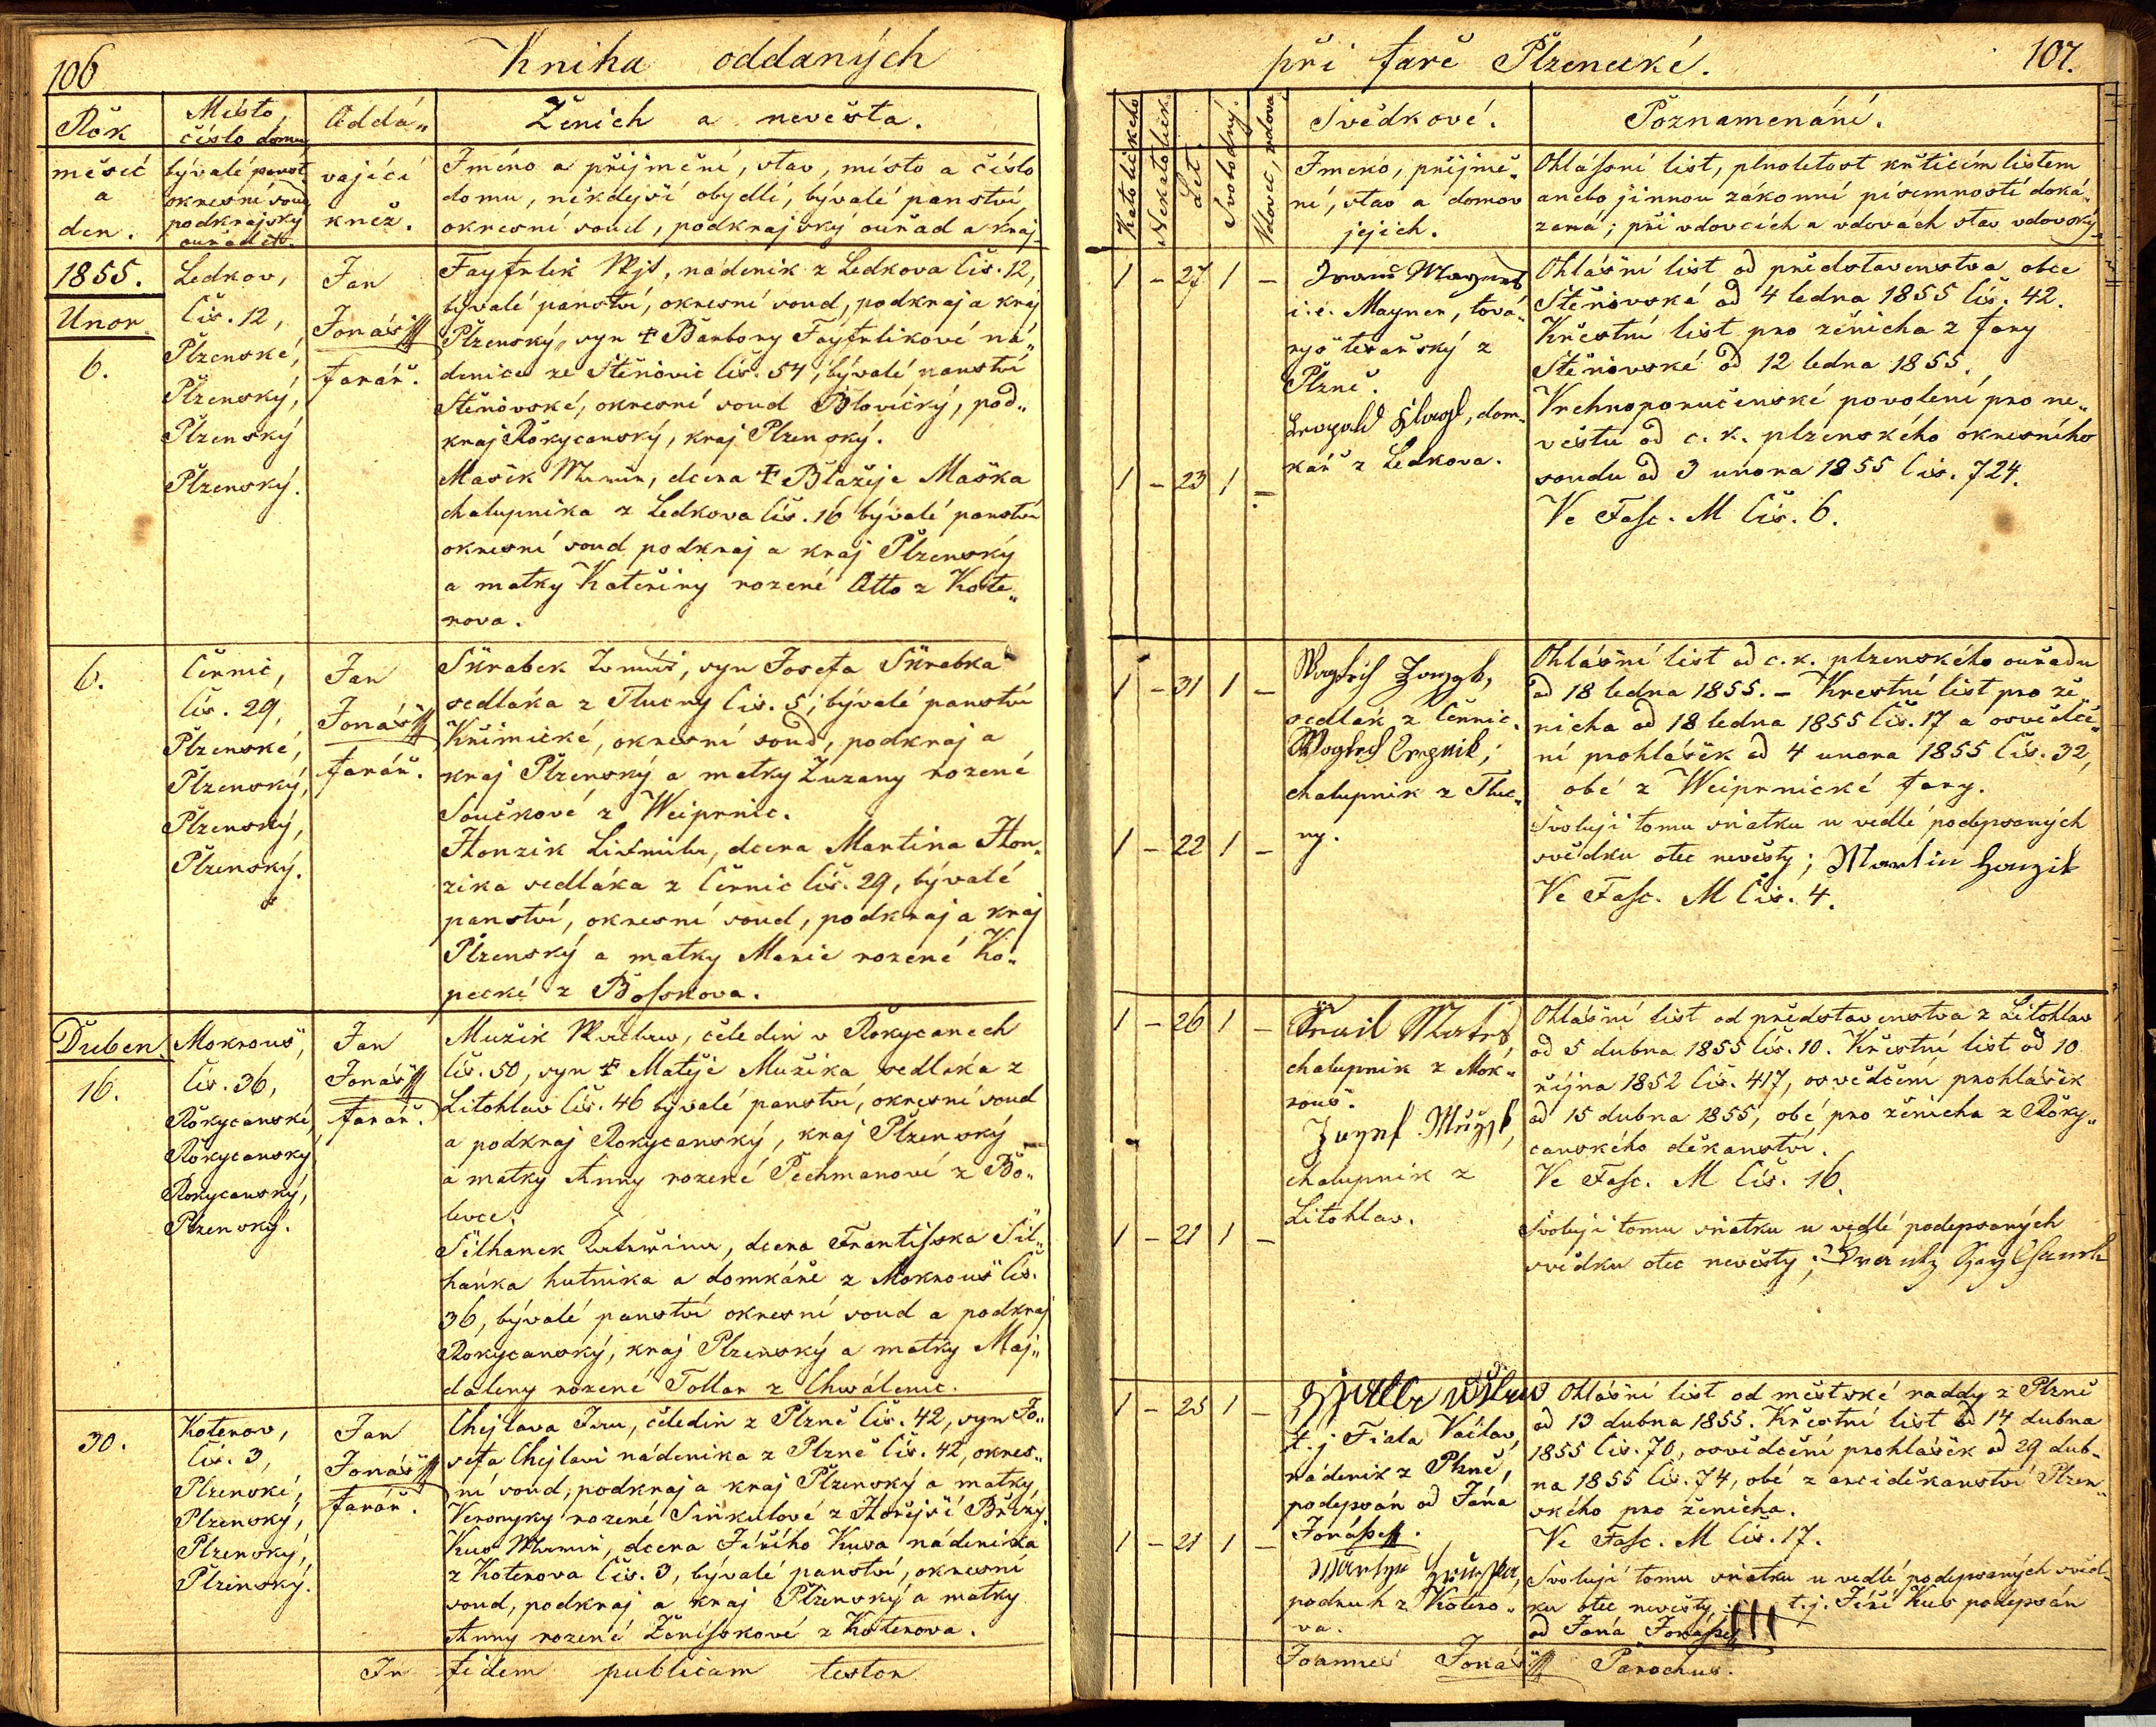 106
Kniha oddaných
Rok
měsíc
a
den.
Místo,
číslo domu,
bývalé panst.
okresní soud
podkrajský
ouřad atd.
Oddá„
vající
kněz.
Ženich a nevěsta.
Jméno a přijmění, stav, místo a číslo
domu, někdejší obydlí, bývalé panství,
okresní soud, podkrajský ouřad a kraj.
1855.
Unor
6.
Ledkov,
čís. 12,
Plzenské,
Plzenský,
Plzenský
Plzenský.
Jan
Jonáš
farář.
Fayfrlik Vojt, nádeník z Ledkova čís. 12,
bývalé panství, okresní soud, podkraj a kraj
Plzenský, syn † Barbory Fayfrlikové ná„
denice ze Štěnovic čís. 54, bývalé panství
Štěnovské, okresní soud Blovický, pod„
kraj Rokycanský, kraj Plzenský.
Mašek, dcera † Blažeje Maška
chalupníka z Ledkova čís. 16 bývalé panství
okresní soud podkraj a kraj Plzenský
a matky Kateřiny rozené Otto z Kote„
rova.
6.
Černic,
čís. 29,
Plzenské,
Plzenský,
Plzenský,
Plzenský.
Jan
Jonáš
farář.
Škrabek Tomáš, syn Josefa Škrabka
sedláka z Tlucny čís. 5, bývalé panství
Křimické, okresní soud, podkraj a
kraj Plzenský a matky Zuzany rozené
Součkové z Weiprnic.
Honzik Lidmila, dcera Martina Hon„
zika sedláka z Černic čís. 29, bývalé
panství, okresní soud, podkraj a kraj
Plzenský a matky Marie rozené Ko„
pecké z Bosskova.
Duben.
16.
Mokrouš,
čís. 36,
Rokycanské,
Rokycanský
Rokycanský,
Plzenský.
Jan
Jonáš
farář.
Mužik Václav, čeledín v Rokycanech
čís. 50, syn † Matěje Mužika sedláka z
Litohlav čís. 46 bývalé panství, okresní soud
a podkraj Rokycanský, kraj Plzenský
a matky Anny rozené Pechmanové z Bo„
levce.
Šilhanek Kateřina, dcera Frantisska Šil„
hanka hutníka a domkáře z Mokrouš čís.
36, bývalé panství okresní soud a podkraj
Rokycanský, kraj Plzenský a matky Maj„
daleny rozené Tollar z Chwálenic.
30.
Koterov,
čís. 3,
Plzenské,
Plzenský,
Plzenský,
Plzenský.
Jan
Jonáš
farář.
Chejlava Jan, čeledín z Plzně čís. 42, syn Jo„
sefa Chejlavi nádeníka z Plzně čís. 42, okres„
ní soud, podkraj a kraj Plzenský a matky
Veronyky rozené Sinkulové z Hořejší Břízy.
Kus, dcera Jiřího Kusa nádeníka
z Koterova čís. 3, bývalé panství, okresní
soud, podkraj a kraj Plzenský a matky
Anny rozené Ženisskové z Koterova.
In fidem publicam testor
při faře Plzenecké.
107.
Katolického
Nekatolick.
Let.
Svobodný.
Vdovec, vdova
Svědkové.
Jmeno, přijmě„
ní, stav a domov
jejich.
Poznamenání.
Ohlássní list, plnoletost křticím listem
anebo jinnou zákonní písemností doká„
zaná; při vdovcích a vdovách stav vdovský.
1 – 27 1 –
1 – 23 1 –
i. e. Mayner, tova„
ryš tesařský z
Plzně.
Leopold, dom„
kář z Ledkova.
Ohlášní list od představenstva obce
Štěnovské od 4 ledna 1855 čís. 42.
Křestní list pro ženicha z fary
Štěnovské od 12 ledna 1855.
Vrchnoporučenské povolení pro ne„
věstu od c. k. plzenského okresního
soudu od 3 unora 1855 čis. 724.
Ve Fasc. M čís. 6.
1 – 31 1 –
1 – 22 1 –
sedlák z Černic.
chalupník z Tluc„
ny.
Ohlášní list od c. k. plzenského ouřadu
od 18 ledna 1855. – Krestní list pro že„
nicha od 18 ledna 1855 čís. 17 a osvědče„
ní prohlášek od 4 unora 1855 čís. 32,
obé z Weiprnické fary.
Svoluji tomu sňatku u vedlé podepsaných
svědku otec nevěsty; Martin Honzik
Ve Fasc. M čís. 4.
1 – 26 1 –
1 – 21 1 –
chalupník z Mok„
rouš.
Jozef Mužik,
chalupník z
Litohlav.
Ohlášní list od představenstva z Litohlav
od 5 dubna 1855 čís. 10. Křestní list od 10
října 1852 čís. 417, osvědčení prohlášek
od 15 dubna 1855, obé pro ženicha z Roky„
canského děkanství.
Ve Fasc. M čís. 16.
Svoluji tomu sňatku u vedlé podepsaných
svědku otec nevěsty;
1 – 25 1 –
1 – 21 1 –
t. j. Fiala Václav,
nádeník z Plzně,
podepsán od Jána
Jonáše.
podruh z Kotero„
va.
Ohlášní list od městské raddy z Plzně
od 13 dubna 1855. Křestní list od 14 dubna
1855 čís. 70, osvědčení prohlášek od 29 dub„
na 1855 čís. 74, obé z arciděkanství Plzen„
ského pro ženicha.
Ve Fasc. M čís. 17.
Svoluji tomu sňatku u vedlé podepsaných svěd„
ku otec nevěsty; t. j. Jiří Kus podepsán
od Jána Jonáše
Joannes Jonáš Parochus.